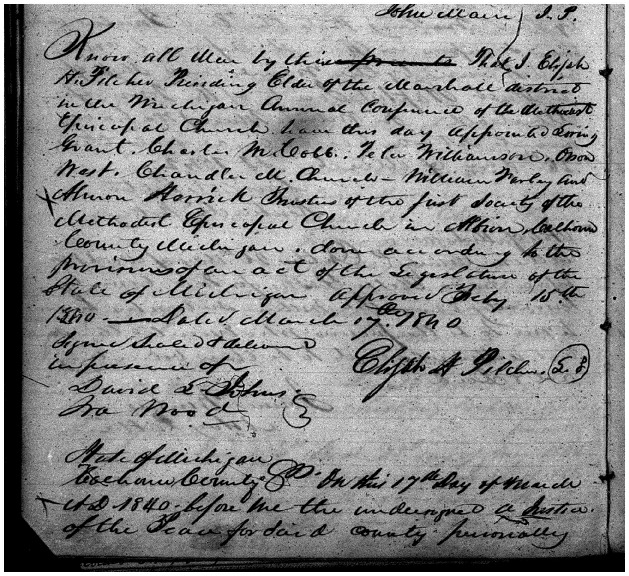 John Marr J. P.
Know all Men by these presents That I Elijah
H. Pilcher Presiding Elder of the Marshall district
in the Michigan Annual Conference of the Methodist
Episcopal Church have this day appointed Loring
Grant. Charles M. Cobb. Peter Williamson. Orson
West. Chandler M. Church - William Farley and
Almon Herrick Trustees of the first Society of the
Methodist Episcopal Church in Albion, Calhoun
County Michigan. done according to the
provisions of an act of the Legislature of the
State of Michigan approved Feby. 15th
1840 - Dated March 17th 1840
Signed Sealed & delivered
in presence of Elijah H Pilcher. L. S
David L Johns.
Ira Wood
State of Michigan
Calhoun County SS. On this 17th Day of March
A D 1840 before me the undersigned a Justice
of the Peace for said county personally